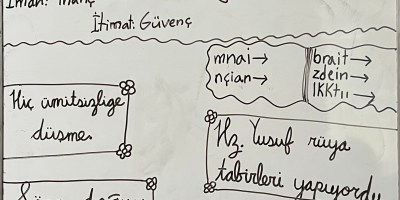 İman: İnanç
İtimat: Güvenç
mnai→
nçian→
brait→
zdein→
IKKtıı→
Hiç ümitsizliğe
düşme.
Hz. Yusuf rüya
tabirleri yapıyordu